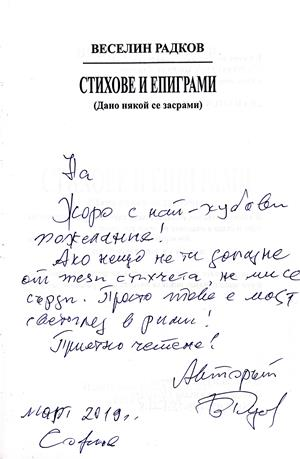 ВЕСЕЛИН РАДКОВ
СТИХОВЕ И ЕПИГРАМИ
(Дано някой се засрами)
На
Жоро с най-хубави
пожелания!
Ако нещо не ти допадне
от тези стихчета, не ми се
сърди. Просто това е моят
светоглед в рими!
Приятно четене!
Авторът
март 2019г.
София